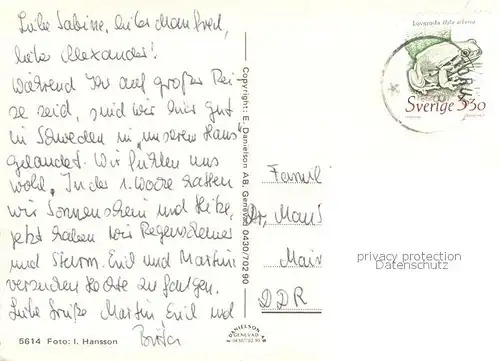 Liebe Sabine, lieber Manfred,
lieber Alexander!
Während Ihr auf großer Rei-
se seid, sind wir hier gut
in Schweden in „unserem Haus“
gelandet. Wir fühlen uns
wohl. In der 1. Woche hatten
wir Sonnenschein und Hitze,
jetzt haben wir Regenschauer
und Sturm. Emil und Martin
versuchen Hechte zu fangen.
Liebe Grüße Martin Emil und
Britta
5614 Foto: I. Hansson
Copyright: E. Danielson AB, Genevad 0430/702 90
DANIELSON
GENEVAD
0430/702 90
Lövgroda Hyla arborea
Sverige 3³⁰
Famil
Dr. Man
Mair
DDR
privacy protection
Datenschutz